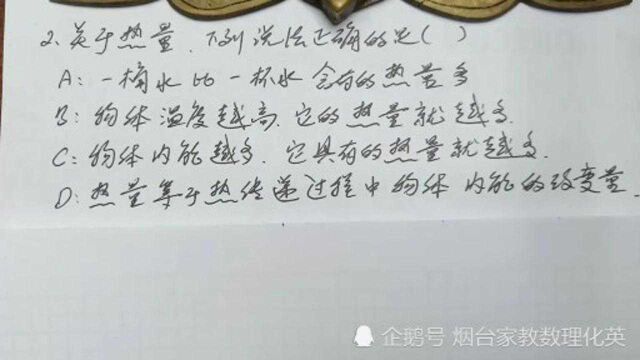 2. 关于热量,下列说法正确的是( )
A: 一桶水比一杯水含有的热量多
B: 物体温度越高.它的热量就越多.
C: 物体内能越多.它具有的热量就越多.
D: 热量等于热传递过程中物体内能的改变量.
企鹅号 烟台家教数理化英